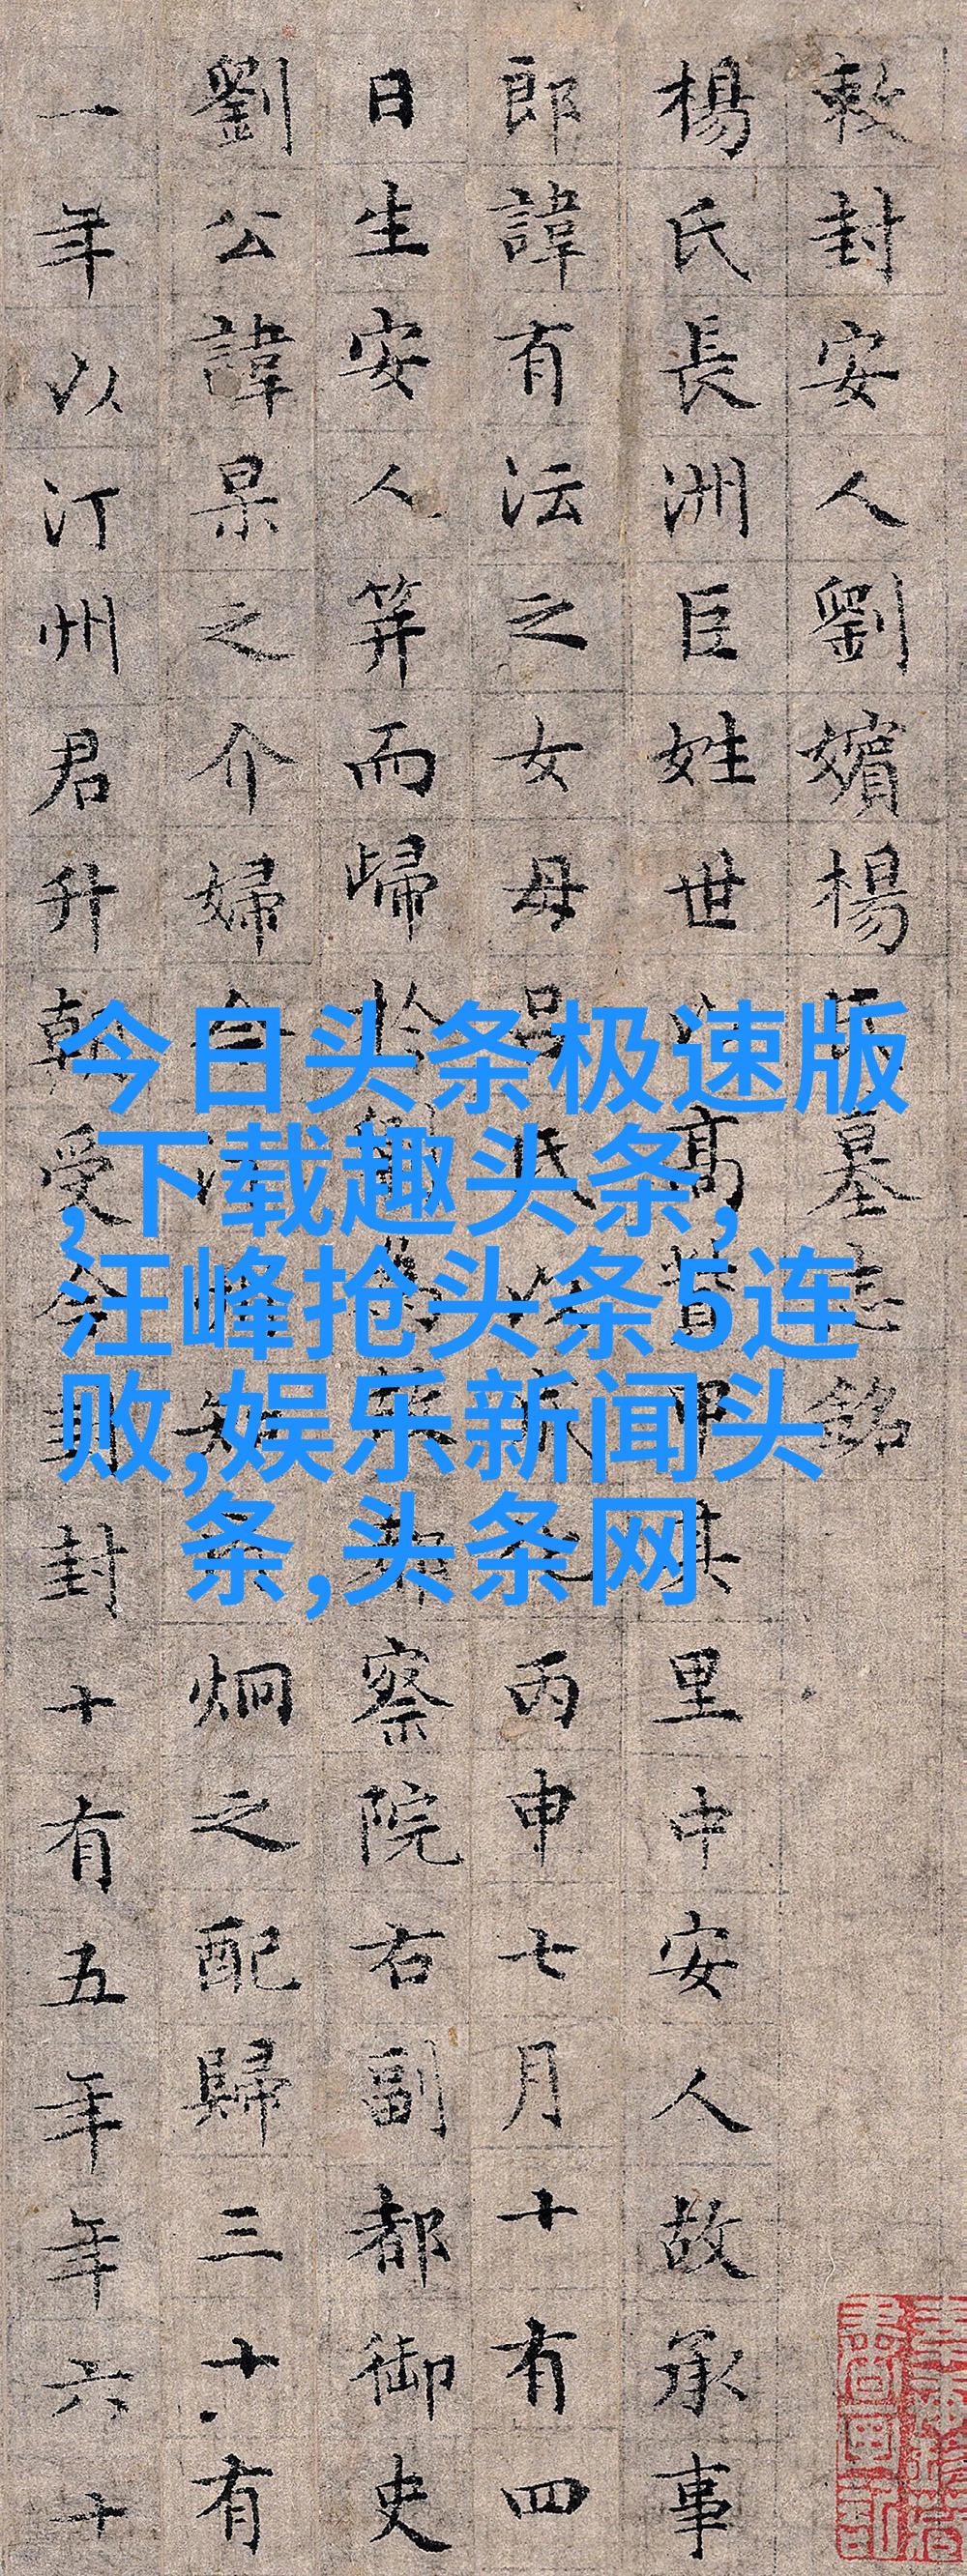 敕封安人劉嬪楊氏墓志銘
楊氏長洲巨姓世以高貲甲其里中安人故承事
郎諱有沄之女母呂氏以丙申七月十有四
日生安人笄而歸於察院右副都御史
劉公諱杲之介婦今汀州知炯之配歸三十有
一年以汀州君升朝受今封封十有五年年六十
今日头条极速版
,下载趣头条,
汪峰抢头条5连
败,娱乐新闻头
条,头条网